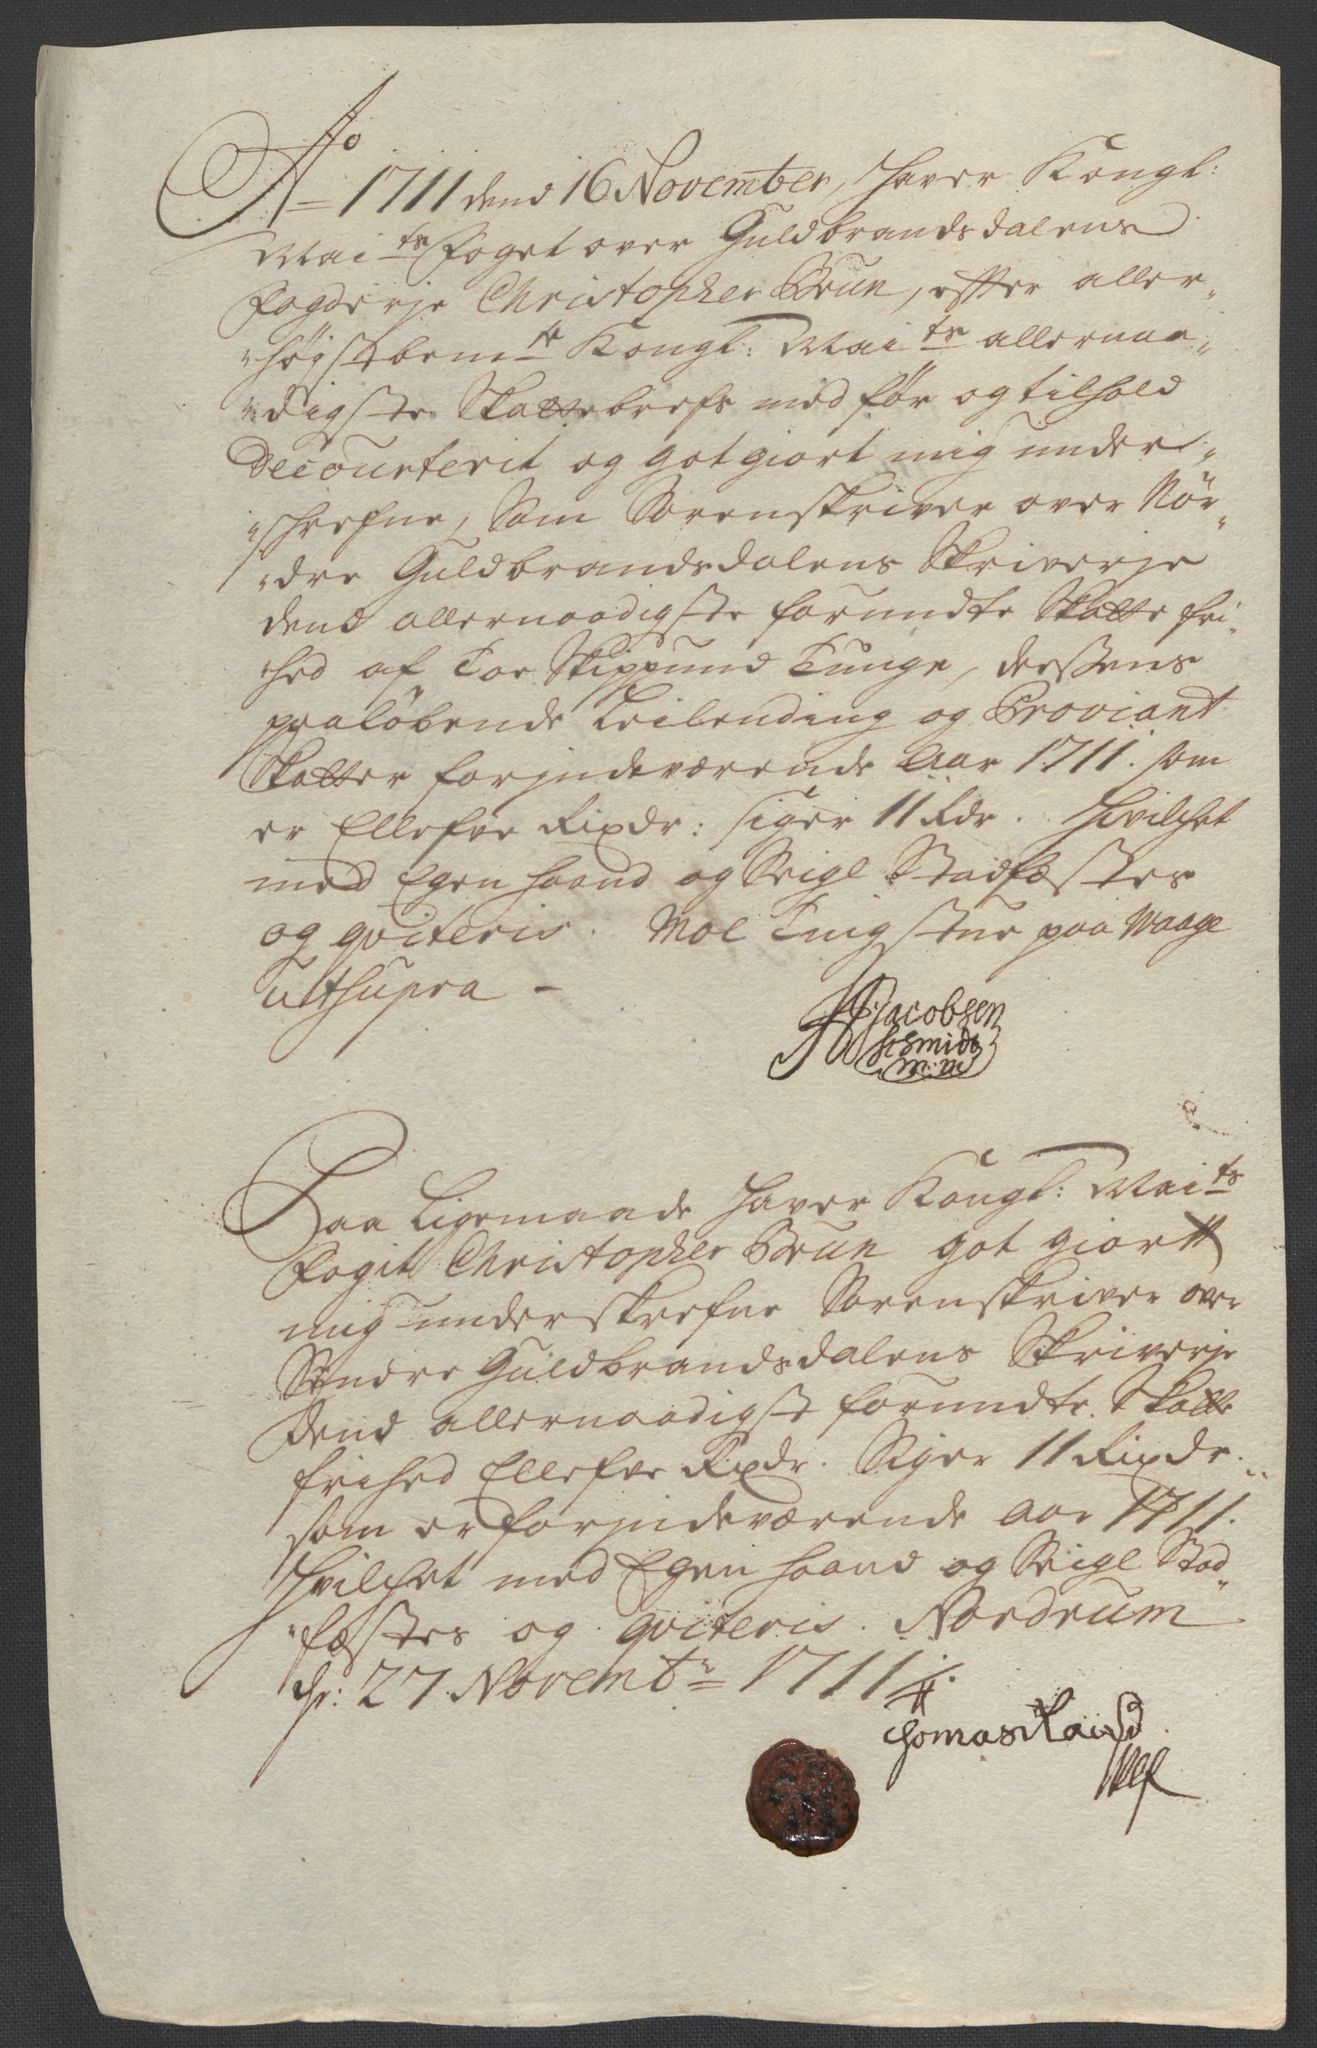 Ao 1711 dend 16 November, Haver Kongl:
Maits Foget over Guldbrandsdalens
Fogderje Christopher Brun, efter aller-
høystbemte Kongl: Maits allernaa-
digste Skattebrefs med før og tilhold
Decourterit og got giort mig under-
schrefne, Som Sorenskriver over Nør-
dre Guldbrandsdalens Skriverje
dend allernaadigste forundte Skatte fri-
hed af Toe Skippund Tunge, dessens
paaløbende Leilending og Proviant
Skatter for indeværende Aar 1711. som
er Ellefve Rixdr: siger 11 Rdr. Hvilchet
med Egen haand og Seigl Stadfæstes
og qviteris. Moe Tingstue paa Waage
ut supra -
Jacobsen
Schmidt
m: m
Paa Ligemaade Haver Kongl: Maits
Fogit Christopher Brun got giortt
mig underskrefne Sorenskriver over
Søndre Guldbrandsdalens Skriverje
dend allernaadigst forundte Skatte
frihed Ellefve Rixdr. Siger 11 Rixdr.
som er for indeværende Aar 1711.
Hvilchet med Egen haand og Seigl Stad-
fæstes og qviteris. Nordrum
dr: 27 Novembr 1711.
Thomas